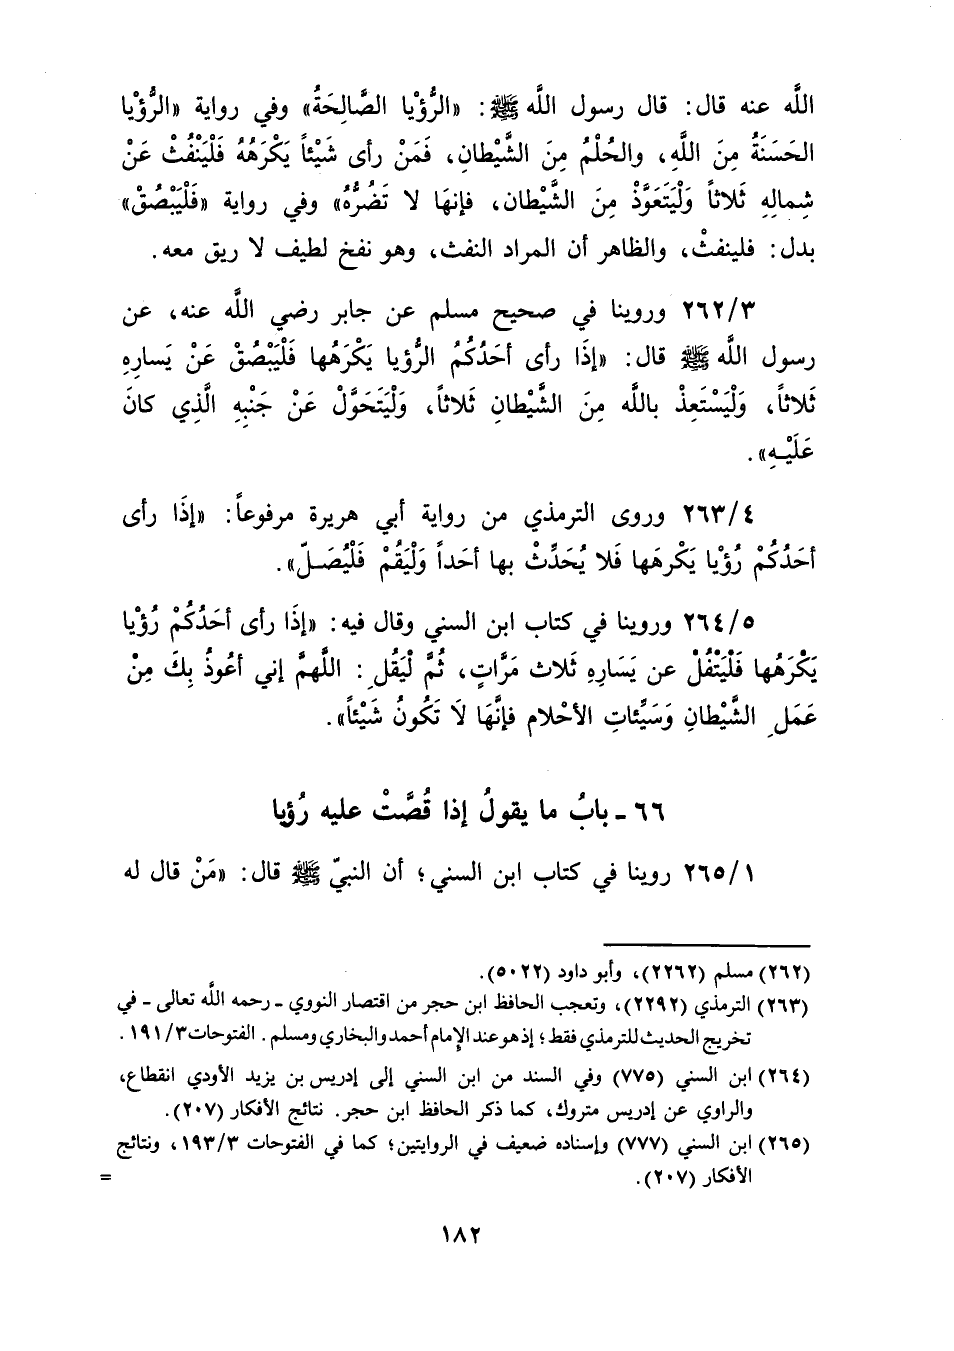 اللَّه عنه قال: قال رسول اللَّه ﷺ: «الرُّؤْيا الصَّالِحَةُ» وفي رواية «الرُّؤْيا
الحَسَنَةُ مِنَ اللَّهِ، والحُلْمُ مِنَ الشَّيْطانِ، فَمَنْ رأى شَيْئاً يَكْرَهُهُ فَلْيَنْفُثْ عَنْ
شِمالِهِ ثَلاثاً وَلْيَتَعَوَّذْ مِنَ الشَّيْطان، فإنهَا لا تَضُرُّهُ» وفي رواية «فَلْيَبْصُقْ»
بدل: فلينفثْ، والظاهر أن المراد النفث، وهو نفخ لطيف لا ريق معه.
٢٦٢/٣ وروينا في صحيح مسلم عن جابر رضي اللَّه عنه، عن
رسول اللَّه ﷺ قال: «إذَا رأى أحَدُكُمُ الرُّؤيا يَكْرَهُها فَلْيَبْصُقْ عَنْ يَسارِهِ
ثَلاثاً، وَلْيَسْتَعِذْ باللَّه مِنَ الشَّيْطانِ ثَلاثاً، وَلْيَتَحَوَّلْ عَنْ جَنْبِهِ الَّذِي كانَ
عَلَيْهِ».
٢٦٣/٤ وروى الترمذي من رواية أبي هريرة مرفوعاً: «إذَا رأى
أحَدُكُمْ رُؤْيا يَكْرهَها فَلا يُحَدِّثْ بها أحَداً وَلْيَقُمْ فَلْيُصَلِّ».
٢٦٤/٥ وروينا في كتاب ابن السني وقال فيه: «إذَا رأى أحَدُكُمْ رُؤْيا
يَكْرَهُها فَلْيَتْفُلْ عن يَسَارِهِ ثَلاث مَرَّاتٍ، ثُمَّ لْيَقُلِ: اللَّهمَّ إني أعُوذُ بِكَ مِنْ
عَمَلِ الشَّيْطانِ وَسَيِّئاتِ الأحْلام فإنَّهَا لَا تَكُونُ شَيْئاً».
٦٦ - بابُ ما يقولُ إذا قُصَّتْ عليه رُؤيا
٢٦٥/١ روينا في كتاب ابن السني؛ أن النبيّ ﷺ قال: «مَنْ قال له
(٢٦٢) مسلم (٢٢٦٢)، وأبو داود (٥٠٢٢).
(٢٦٣) الترمذي (٢٢٩٢)، وتعجب الحافظ ابن حجر من اقتصار النووي - رحمه اللَّه تعالى - في
تخريج الحديث للترمذي فقط؛ إذ هو عند الإمام أحمد والبخاري ومسلم. الفتوحات ١٩١/٣.
(٢٦٤) ابن السني (٧٧٥) وفي السند من ابن السني إلى إدريس بن يزيد الأودي انقطاع،
والراوي عن إدريس متروك، كما ذكر الحافظ ابن حجر. نتائج الأفكار (٢٠٧).
(٢٦٥) ابن السني (٧٧٧) وإسناده ضعيف في الروايتين؛ كما في الفتوحات ١٩٣/٣، ونتائج
الأفكار (٢٠٧). =
١٨٢